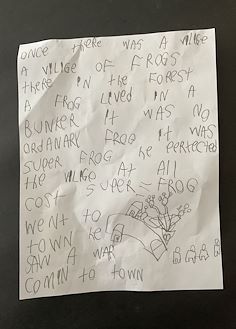 ONCE THERE WAS A VILIGE
A VILIGE OF FROGS
THERE IN THE FOREST
A FROG LIVED IN A
BUNKER IT WAS NO
ORDANARY FROG IT WAS
SUPER FROG HE PERTECTED
THE VILIGE AT All
COST SUPER=FROG
WENT TO
TOWN HE
SAW A WAR
COMIN TO TOWN